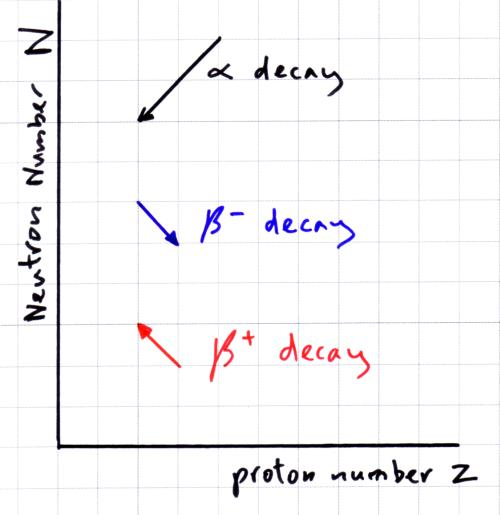 Neutron Number N
α decay
β⁻ decay
β⁺ decay
proton number Z